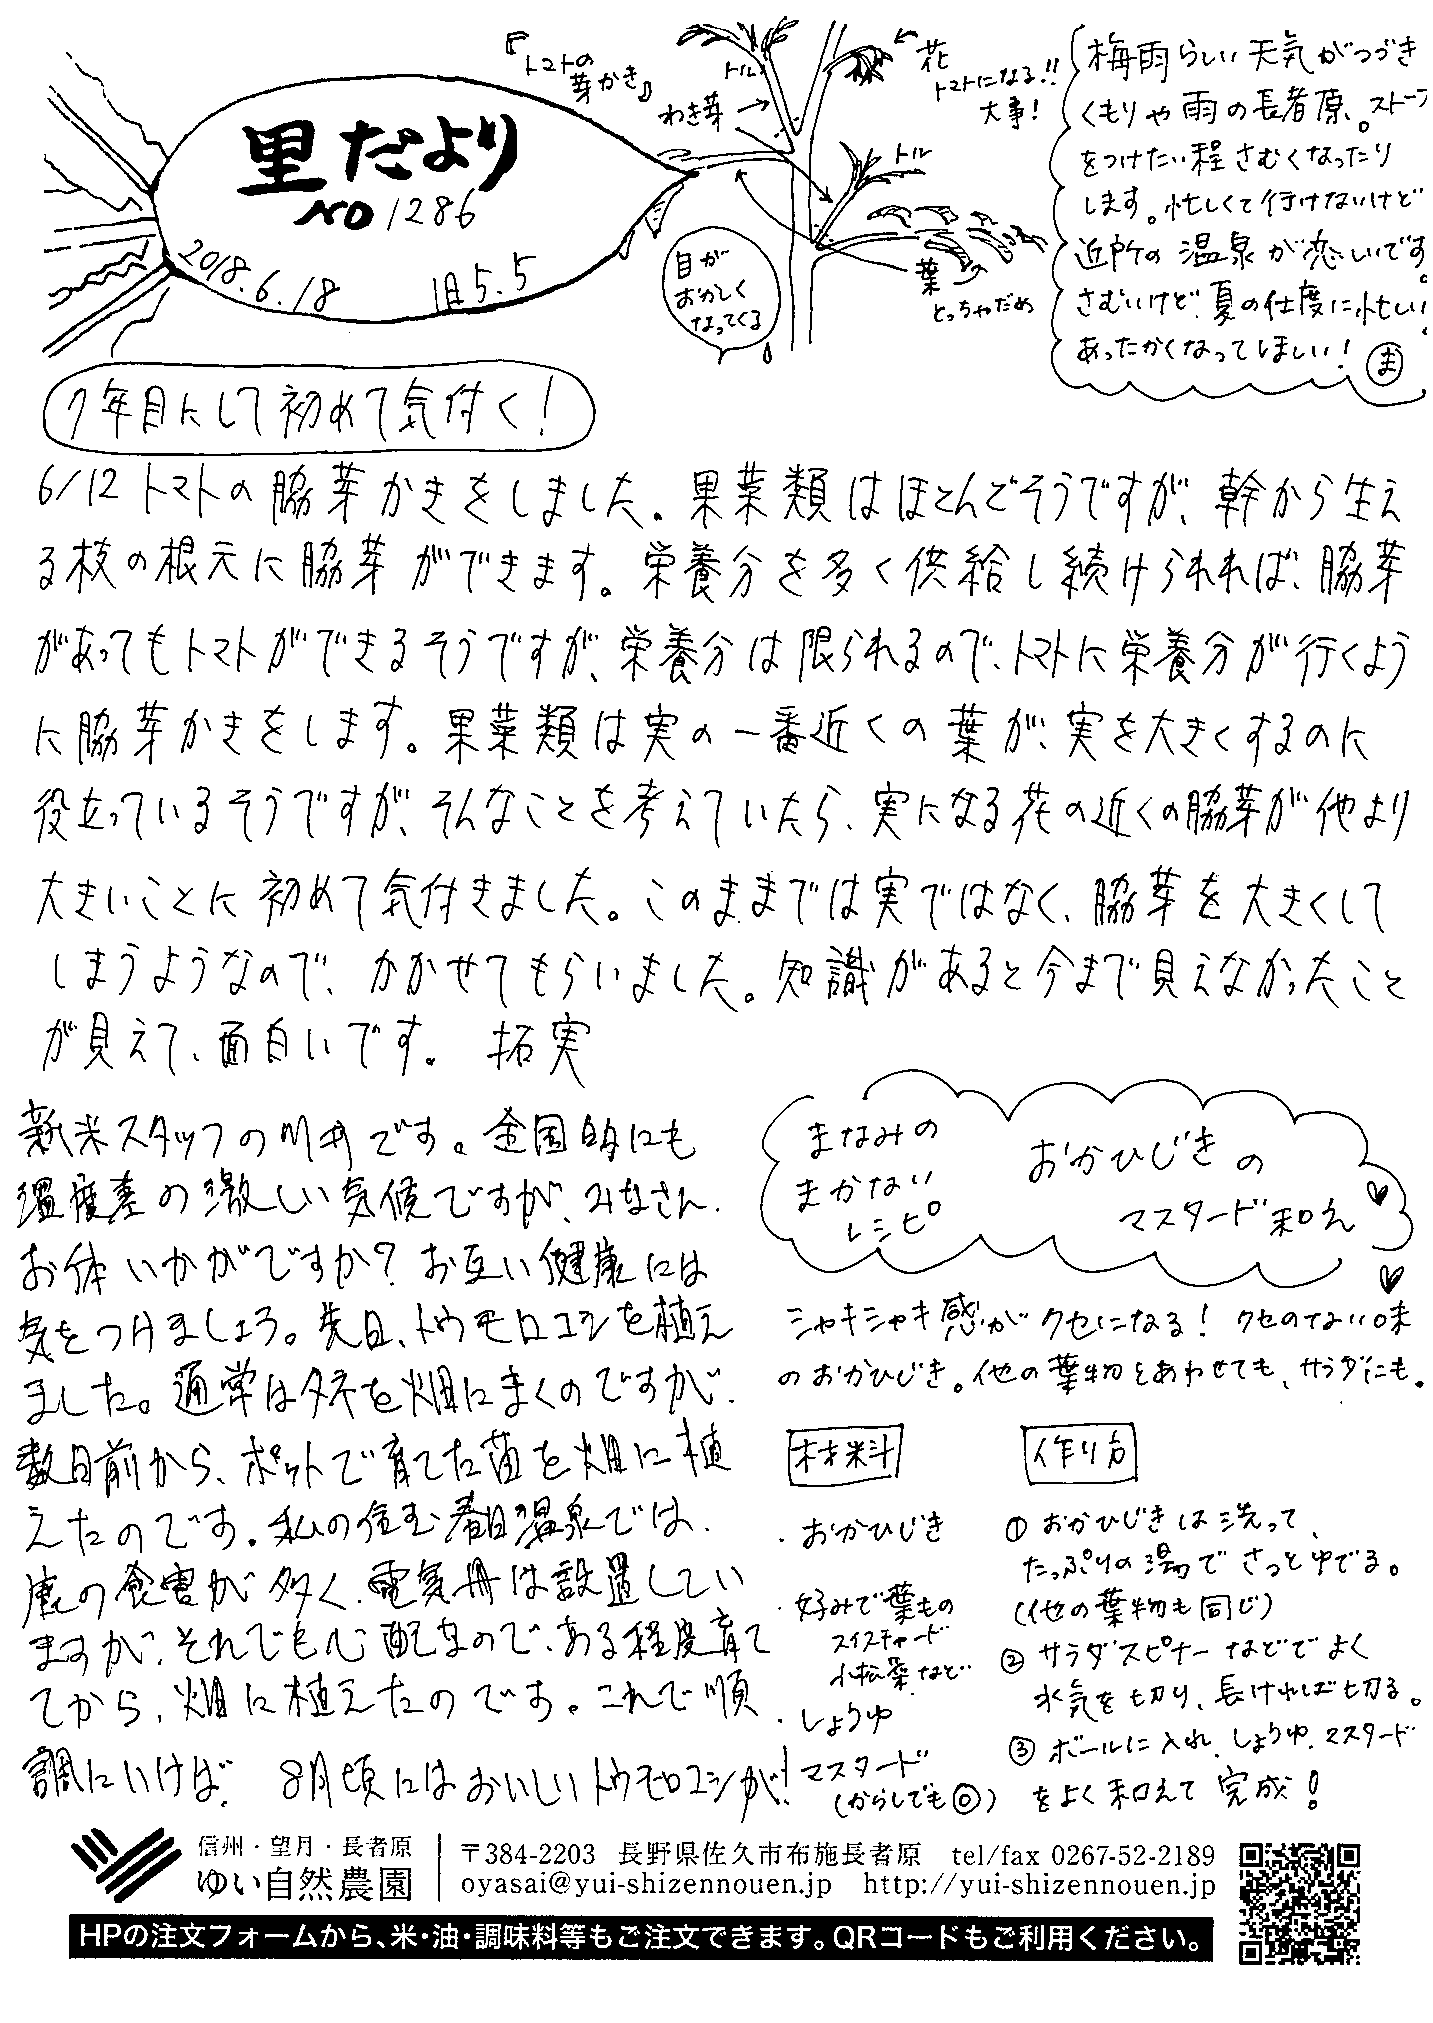 里だより
NO 1286
2018.6.18 旧5.5
『トマトの
芽かき』
トル
わき芽
花
トマトになる!!
大事!
トル
葉
とっちゃだめ
目が
おかしく
なってくる
梅雨らしい天気がつづき
くもりや雨の長者原。ストーブ
をつけたい程さむくなったり
します。忙しくて行けないけど
近所の温泉が恋しいです。
さむいけど、夏の仕度に忙しい。
あったかくなってほしい! ま
7年目にして初めて気付く!
6/12 トマトの脇芽かきをしました。果菜類はほとんどそうですが、幹から生え
る枝の根元に脇芽ができます。栄養分を多く供給し続けられれば、脇芽
があってもトマトができるそうですが、栄養分は限られるので、トマトに栄養分が行くよう
に脇芽かきをします。果菜類は実の一番近くの葉が、実を大きくするのに
役立っているそうですが、そんなことを考えていたら、実になる花の近くの脇芽が他より
大きいことに初めて気付きました。このままでは実ではなく、脇芽を大きくして
しまうようなので、かかせてもらいました。知識があると今まで見えなかったこと
が見えて、面白いです。 拓実
新米スタッフの川井です。全国的にも
温度差の激しい気候ですが、みなさん、
お体いかがですか?お互い健康には
気をつけましょう。先日、トウモロコシを植え
ました。通常はタネを畑にまくのですが、
数日前から、ポットで育てた苗を畑に植
えたのです。私の住む春日温泉では、
鹿の食害が多く、電気柵は設置してい
ますが、それでも心配なので、ある程度育て
てから、畑に植えたのです。これで順
調にいけば、8月頃にはおいしいトウモロコシが!
まなみの
まかない
レシピ
おかひじきの
マスタード和え
シャキシャキ感がクセになる! クセのない味
のおかひじき。他の葉物とあわせても、サラダにも。
材料
・おかひじき
・好みで葉もの
スイスチャード
小松菜など
・しょうゆ
・マスタード
(からしでも◎)
作り方
① おかひじきは洗って、
たっぷりの湯でさっとゆでる。
(他の葉物も同じ)
② サラダスピナーなどでよく
水気を切り、長ければ切る。
③ ボールに入れ、しょうゆ、マスタード
をよく和えて完成!
信州・望月・長者原
ゆい自然農園
〒384-2203 長野県佐久市布施長者原 tel/fax 0267-52-2189
oyasai@yui-shizennouen.jp http://yui-shizennouen.jp
HPの注文フォームから、米・油・調味料等もご注文できます。QRコードもご利用ください。